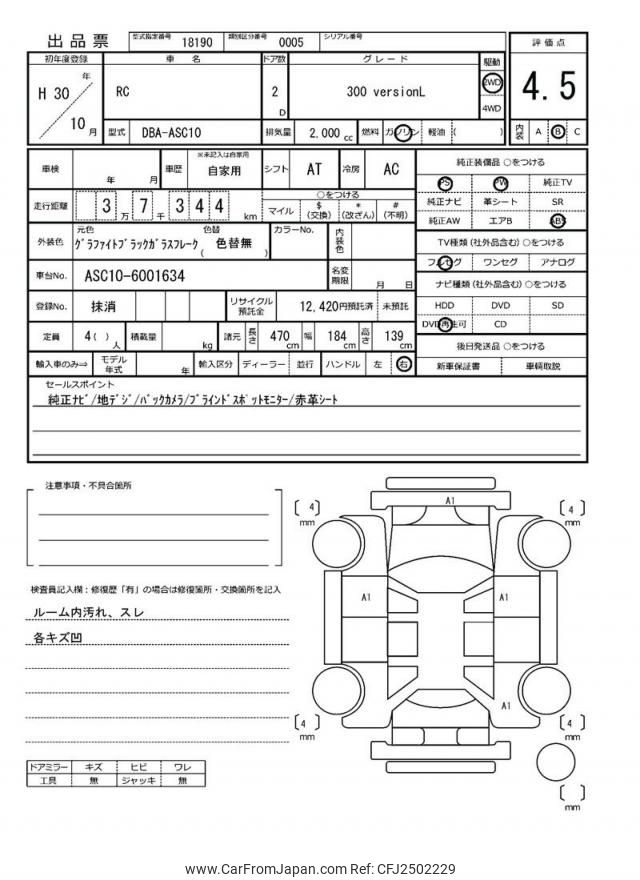 出品票
型式指定番号 18190 類別区分番号 0005 シリアル番号
評価点
4.5
内装 A B C
初年度登録 車名 ドア数 グレード 駆動
H 30 年 10 月
RC
2 D
300 versionL
2WD
4WD
型式 DBA-ASC10 排気量 2,000 cc 燃料 ガソリン 軽油 ( )
車検 年 月 車歴 ※未記入は自家用 自家用 シフト AT 冷房 AC
走行距離 3 万 7 千 3 4 4 km
○をつける
マイル $ (交換) * (改ざん) # (不明)
外装色 元色 グラファイトブラックガラスフレーク 色替 ( 色替無 ) カラーNo. 内装色
車台No. ASC10-6001634 名変期限 月 日
登録No. 抹消 リサイクル預託金 12,420円預託済 未預託
定員 4( ) 人 積載量 kg 諸元 長さ 470 cm 幅 184 cm 高さ 139 cm
輸入車のみ⇒ モデル年式 年 輸入区分 ディーラー 並行 ハンドル 左 右
純正装備品 ○をつける
PS PW 純正TV
純正ナビ 革シート SR
純正AW エアB ABS
TV種類 (社外品含む) ○をつける
フルセグ ワンセグ アナログ
ナビ種類 (社外品含む) ○をつける
HDD DVD SD
DVD再生可 CD
後日発送品 ○をつける
新車保証書 車輌取説
セールスポイント
純正ナビ/地デジ/バックカメラ/ブラインドスポットモニター/赤革シート
注意事項・不具合箇所
検査員記入欄：修復歴「有」の場合は修復箇所・交換箇所を記入
ルーム内汚れ、スレ
各キズ凹
ドアミラー キズ ヒビ ワレ
工具 無 ジャッキ 無
[ 4 ] mm
A1
[ 4 ] mm
A1
A1
A1
[ 4 ] mm
[ 4 ] mm
[ ] mm
www.CarFromJapan.com Ref: CFJ2502229